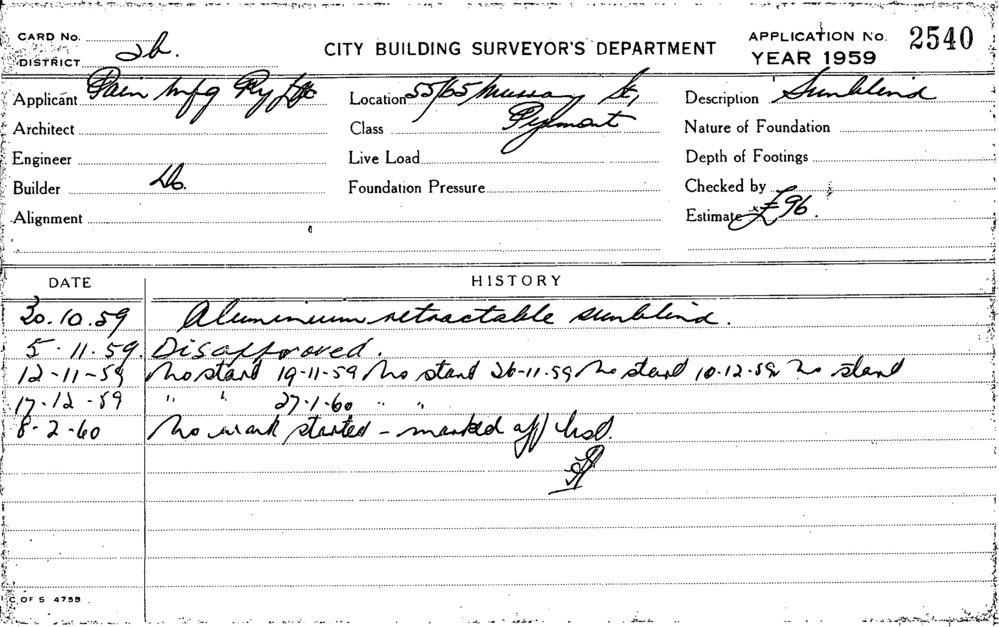 CARD No.
DISTRICT 2b.
CITY BUILDING SURVEYOR'S DEPARTMENT
APPLICATION No. 2540
YEAR 1959
Applicant Pain Mfg Pty Ltd Location 55/65 Murray St, Description Sunblind
Architect Class Pyrmont Nature of Foundation
Engineer Live Load Depth of Footings
Builder Do. Foundation Pressure Checked by
Alignment Estimate £96.
DATE HISTORY
20.10.59 Aluminium retractable sunblind.
5.11.59 Disapproved.
12-11-59 No start 19-11-59 No start 26-11-59 No start 10-12-59 No start
17-12-59 " " 27-1-60 " "
8-2-60 No work started - marked off list.
C OF S 4755